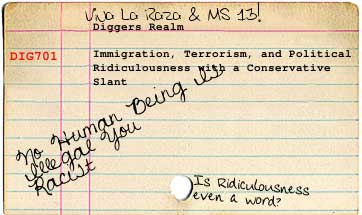 Viva La Raza & MS 13!
Diggers Realm
DIG701
Immigration, Terrorism, and Political
Ridiculousness with a Conservative
Slant
No Human Being IS
illegal You
Racist
Is Ridiculousness
even a word?